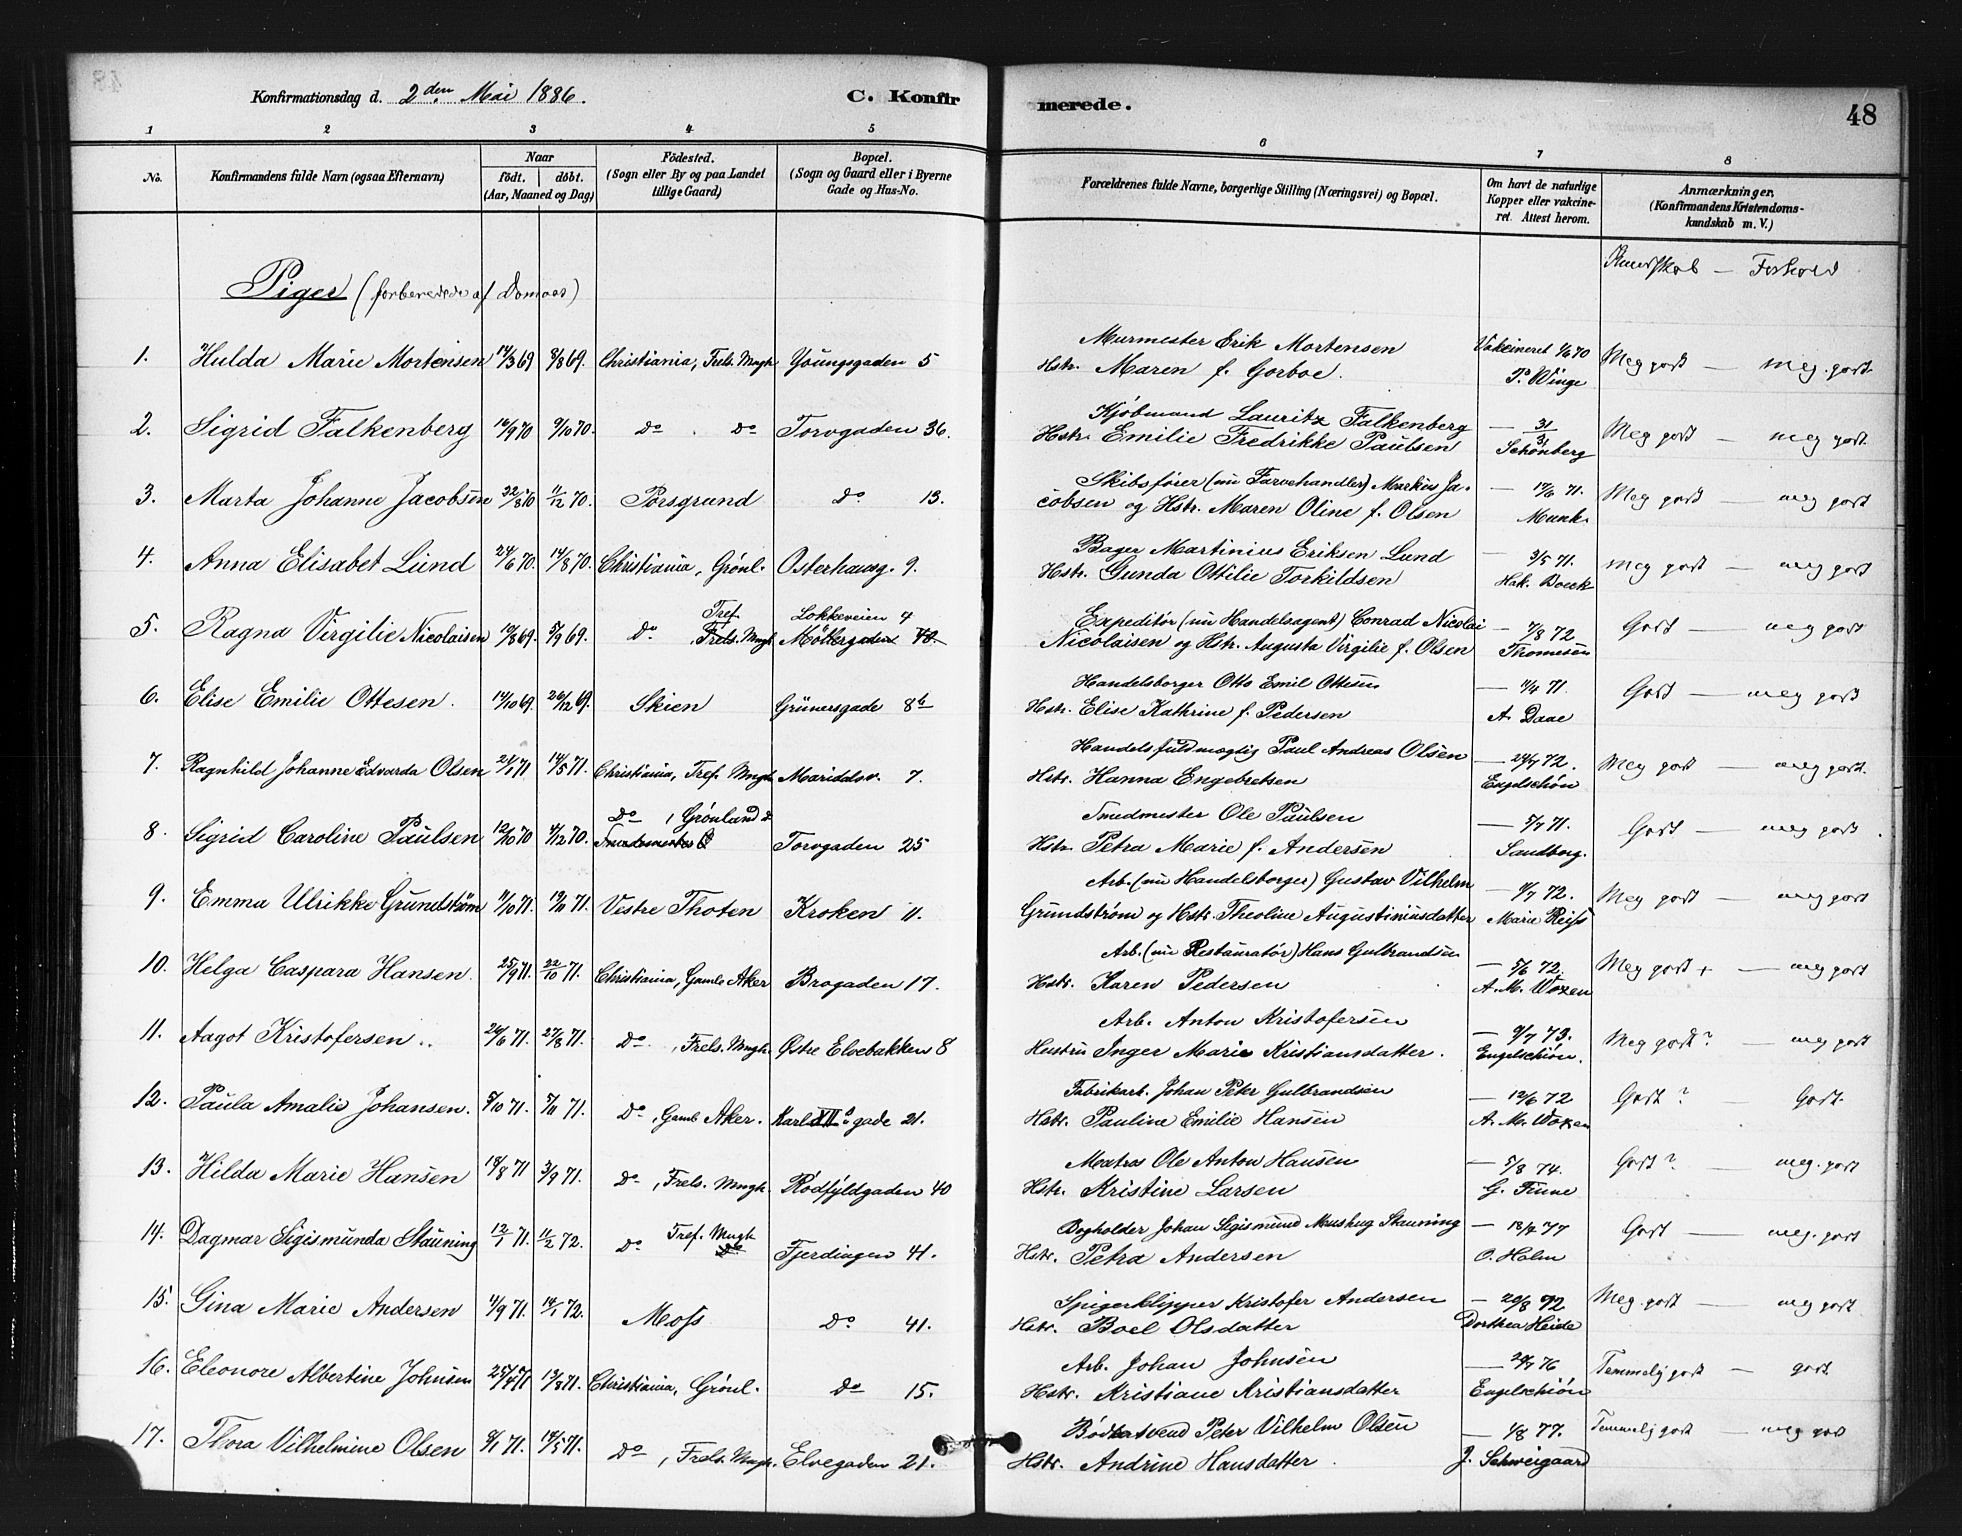 Konfirmationsdag d. 2den Mai 1886. C. Konfirmerede. 48
1 2 3 4 5 6 7 8
No. Konfirmandens fulde Navn (ogsaa Efternavn) Naar født. døbt. (Aar, Maaned og Dag) Födested. (Sogn eller By og paa Landet tillige Gaard) Bopæl. (Sogn og Gaard eller i Byerne Gade og Hus-No. Forældrenes fulde Navne, borgerlige Stilling (Næringsvei) og Bopæl. Om havt de naturlige Kopper eller vakcineret. Attest herom. Anmærkninger. (Konfirmandens Kristendomskundskab m. V.)
Kundskab — Forhold
Piger (forberedede af Domaas)
1. Hulda Marie Mortensen 14/3 69 8/8 69. Christiania, Frels. Mngh. Youngsgaden 5 Murmester Erik Mortensen Vakcineret 1/6 70 Meg godt — meg. godt.
Hstr. Maren f. Gorboe. P. Winge
2. Sigrid Falkenberg 16/9 70 9/10 70. Do . Do Torvgaden 36. Kjöbmand Lauritz Falkenberg — Meg godt — meg godt.
Hstr. Emilie Fredrikke Paulsen Schönberg
3. Marta Johanne Jacobsen 22/8 70 11/12 70. Porsgrund Do 13. Skibsfører (nu Farvehandler) Markus Ja- — 17/6 71. Meg godt — meg godt
cobsen og Hstr. Maren Oline f. Olsen Munk.
4. Anna Elisabet Lund 24/6 70. 14/8 70. Christiania, Grönl. Osterhausg. 9. Bager Martinius Eriksen Lund — 3/5 71. meg godt — meg godt
Hstr. Gunda Ottilie Torkildsen Hak. Boeck
5. Ragna Virgilie Nicolaisen 10/8 69. 5/9 69. Do Tref. Frels. Mngh. Løkkeveien 4 Möllergaden 40. Expeditør (nu Handelsagent) Conrad Nicolai — 7/8 72 Godt — meg godt
Nicolaisen og Hstr. Augusta Virgilie f. Olsen Thomesen
6. Elise Emilie Ottesen. 14/10 69. 26/12 69. Skien Grünersgade 8b Handelsborger Otto Emil Ottesen — 11/4 71. Godt — meg godt
Hstr. Elise Kathrine f. Pedersen A. Daae
7. Ragnhild Johanne Edvarda Olsen 24/1 71 14/5 71. Christiania, Tref. Mngh. Maridalsv. 7. Handelsfuldmægtig Paul Andreas Olsen — 24/7 72. Meg godt — meg godt.
Hstr. Hanna Engebretsen Engelschiön
8. Sigrid Caroline Paulsen 12/10 70 4/12 70. Do, Grönland Torvgaden 25 Smedmester Ole Paulsen — 5/7 71. Godt — meg godt.
Hstr. Petra Marie f. Andersen Sandberg.
9. Emma Ulrikke Grundström 11/10 71. 19/11 71. Vestre Thoten Kroken 11. Arb. (nu Handelsborger) Gustav Vilhelm — 9/7 72. Meg godt — meg godt
Grundström og Hstr. Theoline Augustiniusdatter Marie Reiss
10. Helga Caspara Hansen. 25/9 71. 22/10 71. Christiania, Gamle Aker Brogaden 17. Arb. (nu Restauratør) Hans Gulbrandsen — 5/6 72. Meg godt + — meg godt
Hstr. Karen Pedersen A. M. Woxen
11. Aagot Kristofersen. 24/6 71. 27/8 71. Do, Frels. Mngh. Østre Elvebakken 8 Arb. Anton Kristofersen — 9/7 73. Meg godt? — meg godt
Hustru Inger Marie Kristiansdatter. Engelschiön.
12. Paula Amalie Johansen. 8/10 71. 5/11 71. Do, Gaml Aker. Karl XII's gade 21. Fabrikarb. Johan Peter Gulbrandsen — 12/6 72 Godt? — Godt.
Hstr. Pauline Emilie Hansen A. M. Woxen
13. Hilda Marie Hansen 18/8 71 3/9 71. Do, Frels. Mngh. Rödfyldgaden 40 Matros Ole Anton Hansen — 5/8 74. Godt? — meg. godt
Hstr. Kristine Larsen G. Finne
14. Dagmar Sigismunda Stauning 12/7 71. 11/2 72. Do Tref. Mngh. Do Fjerdingen 41. Bogholder Johan Sigismund Stauning — 18/4 77 Godt — meg. godt
Hstr. Petra Andersen O. Holm
15. Gina Marie Andersen 4/9 71. 14/1 72. Moss Do 41. Spigerklipper Kristofer Andersen — 20/8 72 Meg. godt — meg godt
Hstr. Boel Olsdatter Dorthea Heide
16. Eleonore Albertine Johnsen 25/4 71 13/8 71. Christiania, Grönl. Do 15. Arb. Johan Johnsen — 24/7 76 Temmelig godt — godt.
Hstr. Kristiane Kristiansdatter Engelschiön
17. Thora Vilhelmine Olsen 8/1 71. 14/5 71. Do, Frels. Mngh. Elvegaden 21. Bødkersvend Peter Vilhelm Olsen — 1/8 77. Temmelig godt — meg god
Hstr. Andrine Hansdatter. J. Schweigaard